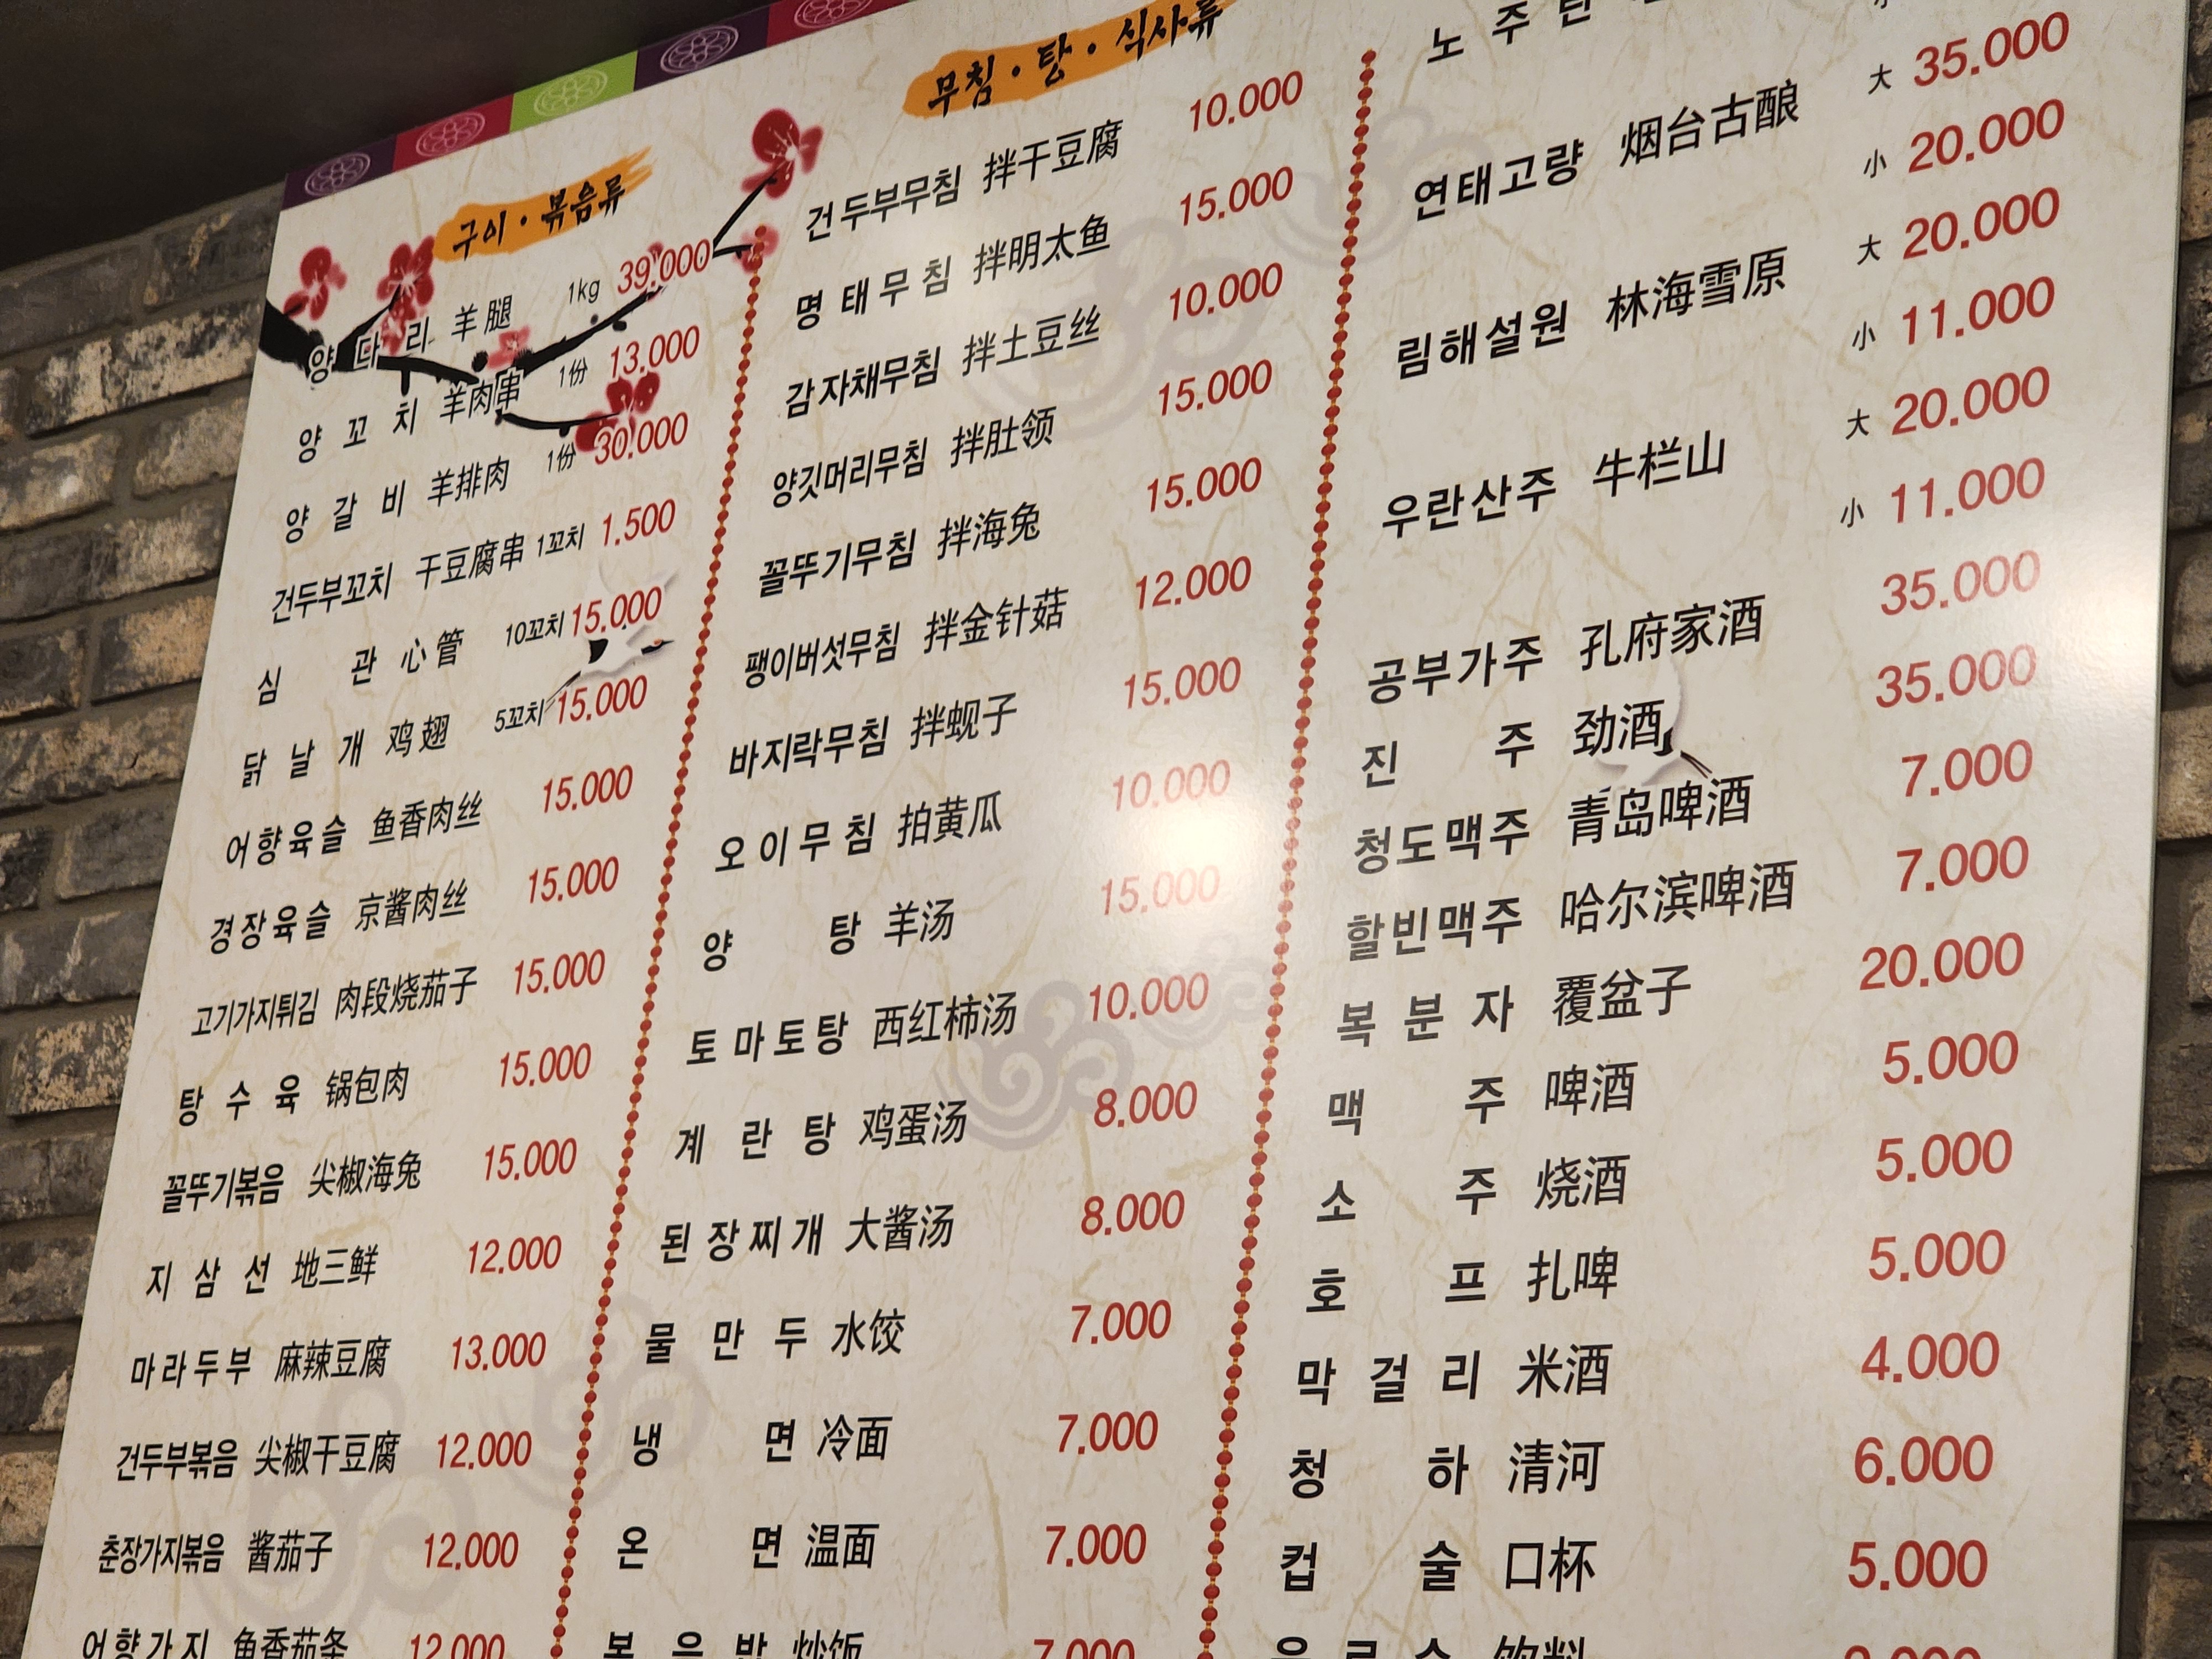 구이 · 볶음류
양 다 리 羊腿 1kg 39.000
양 꼬 치 羊肉串 1份 13.000
양 갈 비 羊排肉 1份 30.000
건두부꼬치 干豆腐串 1꼬치 1.500
심 관 心管 10꼬치 15.000
닭 날 개 鸡翅 5꼬치 15.000
어향육슬 鱼香肉丝 15.000
경장육슬 京酱肉丝 15.000
고기가지튀김 肉段烧茄子 15.000
탕 수 육 锅包肉 15.000
꼴뚜기볶음 尖椒海兔 15.000
지 삼 선 地三鲜 12.000
마라두부 麻辣豆腐 13.000
건두부볶음 尖椒干豆腐 12.000
춘장가지볶음 酱茄子 12.000
어향가지 鱼香茄条 12.000
무침 · 탕 · 식사류
건두부무침 拌干豆腐 10.000
명태무침 拌明太鱼 15.000
감자채무침 拌土豆丝 10.000
양깃머리무침 拌肚领 15.000
꼴뚜기무침 拌海兔 15.000
팽이버섯무침 拌金针菇 12.000
바지락무침 拌蚬子 15.000
오이무침 拍黄瓜 10.000
양 탕 羊汤 15.000
토마토탕 西红柿汤 10.000
계 란 탕 鸡蛋汤 8.000
된장찌개 大酱汤 8.000
물 만 두 水饺 7.000
냉 면 冷面 7.000
온 면 温面 7.000
볶 음 밥 炒饭 7.000
노 주
大 35.000
연태고량 烟台古酿
小 20.000
大 20.000
림해설원 林海雪原
小 11.000
大 20.000
우란산주 牛栏山
小 11.000
공부가주 孔府家酒 35.000
진 주 劲酒 35.000
청도맥주 青岛啤酒 7.000
할빈맥주 哈尔滨啤酒 7.000
복 분 자 覆盆子 20.000
맥 주 啤酒 5.000
소 주 烧酒 5.000
호 프 扎啤 5.000
막 걸 리 米酒 4.000
청 하 清河 6.000
컵 술 口杯 5.000
饮料